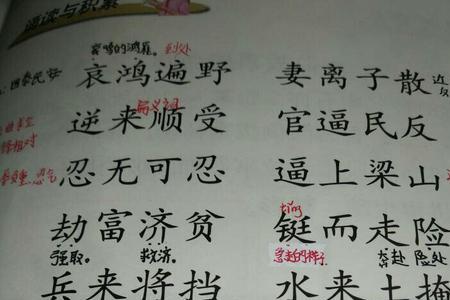 诵读与积累
哀鸣的鸿雁。 到处
国泰民安 哀鸿遍野 妻离子散 近反
偏义词
相对 逆来顺受 官逼民反
忍无可忍 逼上梁山
劫富济贫 tǐng 铤而走险
强取。 救济。 急走的样子 奔赴 险处
兵来将挡 水来土掩